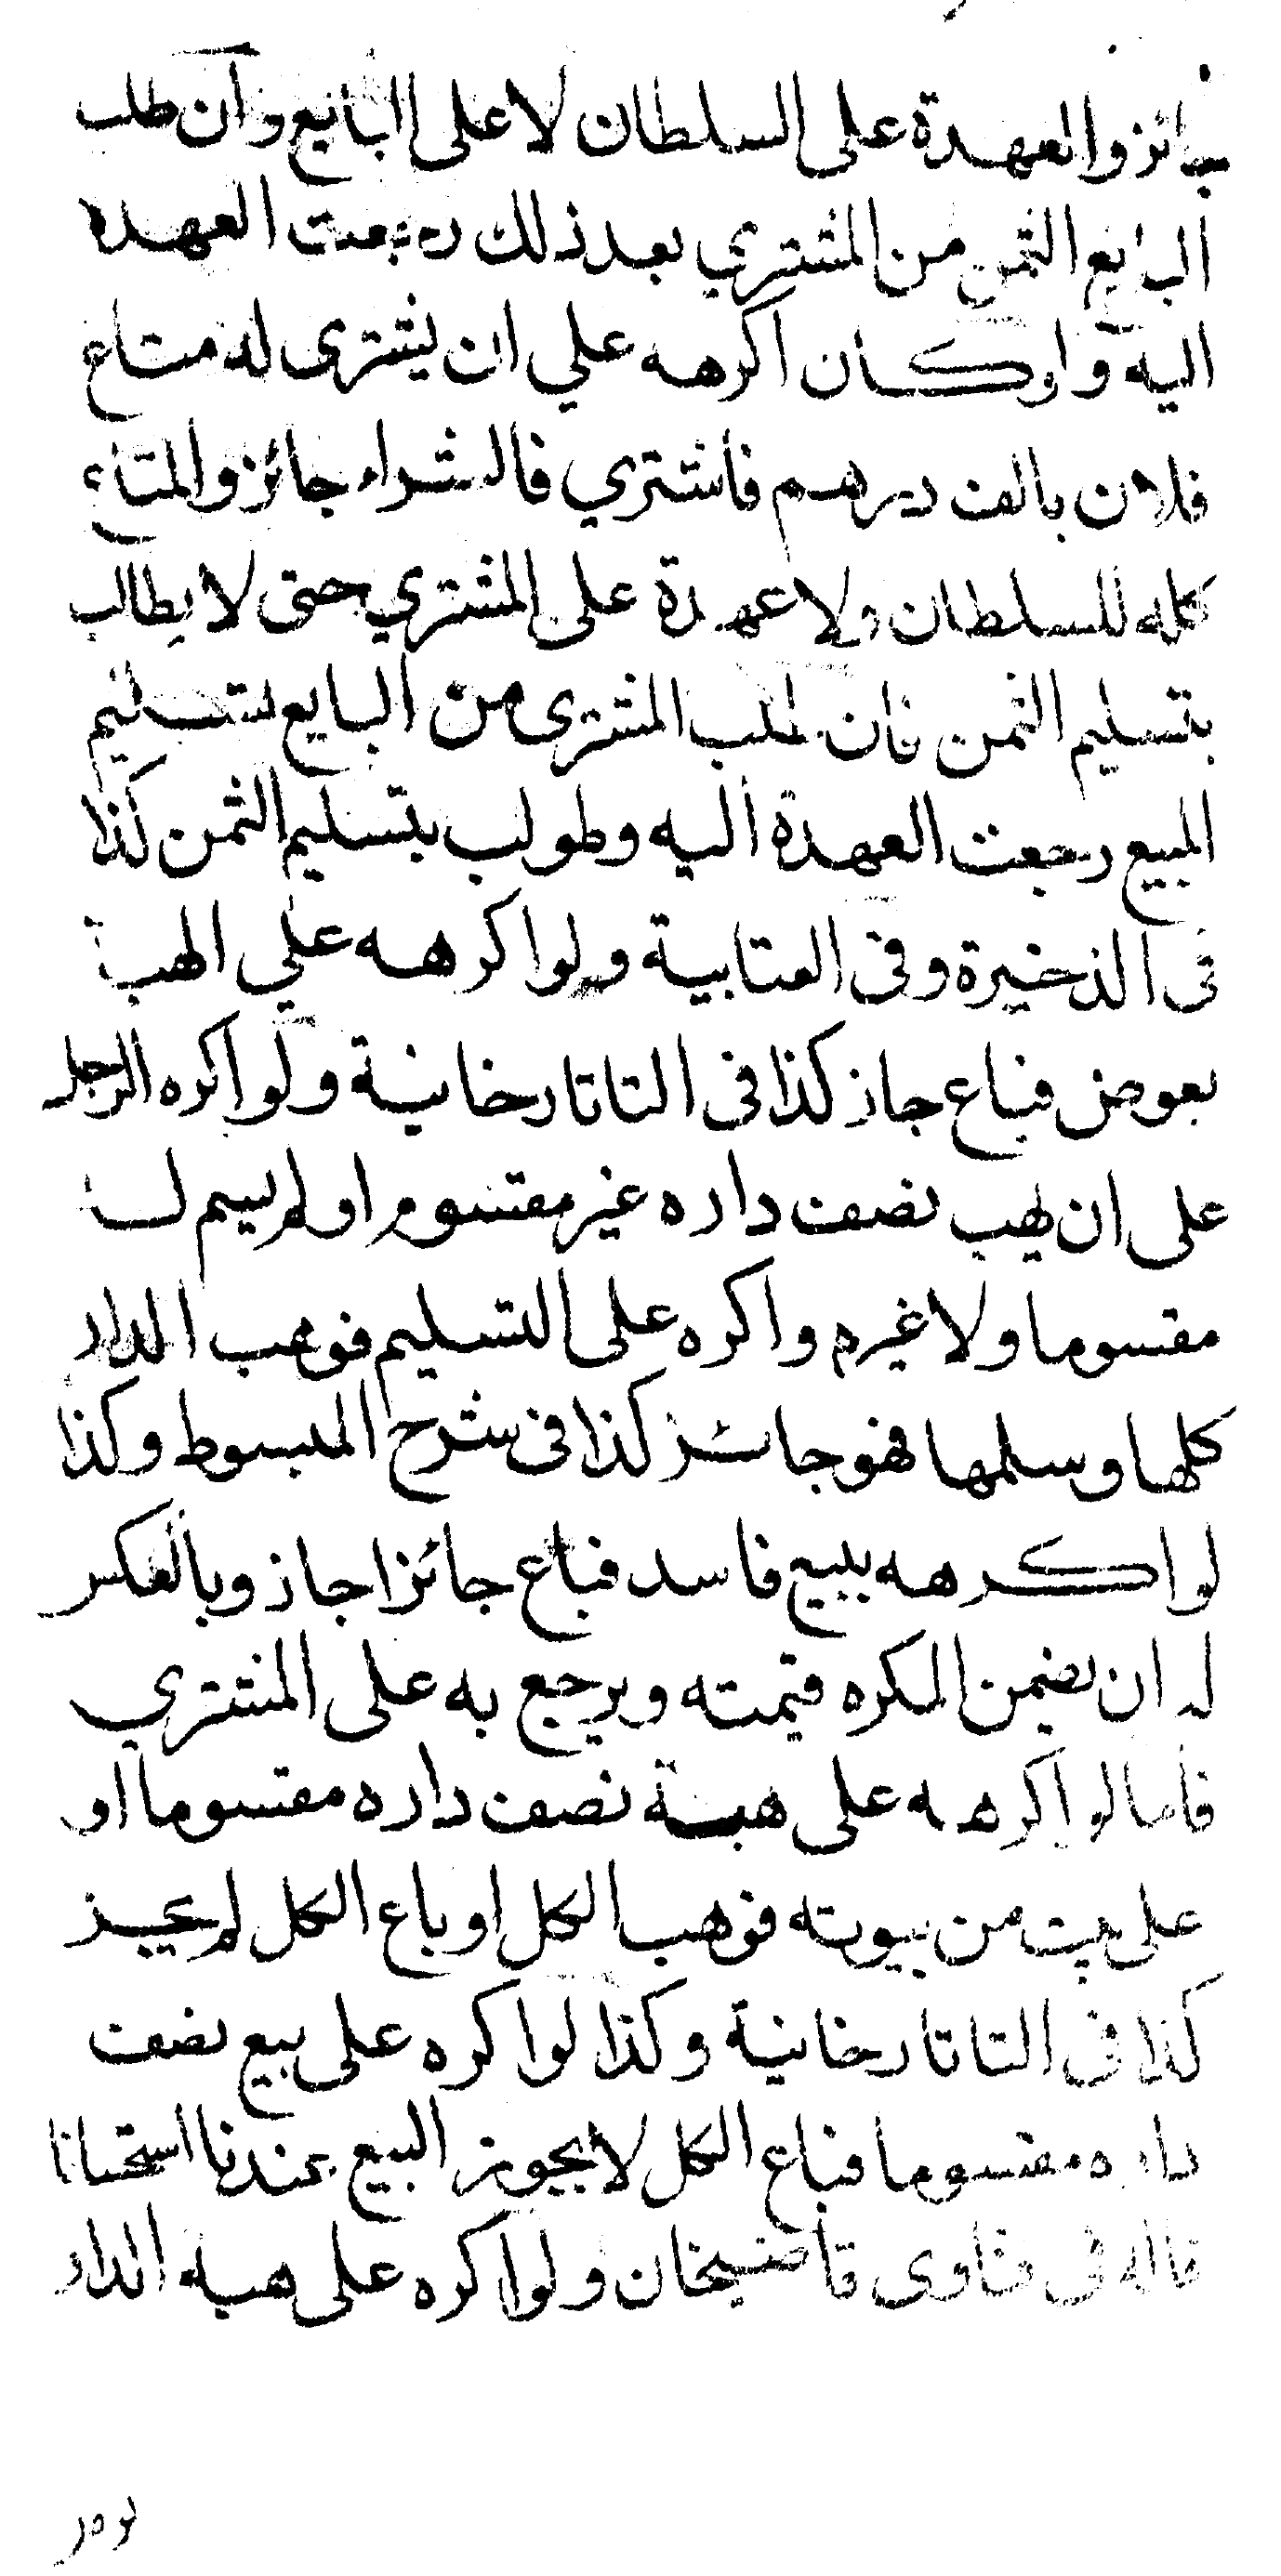 جائز والعهدة على السلطان لا على البايع وان طلب
البايع الثمن من المشتري بعد ذلك رجعت العهدة
اليه ولو كان اكرهه علي ان يشترى له متاع
فلان بالف درهم فاشتري فالشراء جائز والمتاع
كله للسلطان ولا عهدة على المشتري حتى لا يطالب
بتسليم الثمن فان طلب المشترى من البايع تسليم
المبيع رجعت العهدة اليه وطولب بتسليم الثمن كذا
فى الذخيرة وفى العتابية ولو اكرهه علي الهبة
بعوض فباع جاز كذا فى التاتارخانية ولو اكره الرجل
على ان يهب نصف داره غير مقسوم او لم يسم له
مقسوما ولا غيره واكره على التسليم فوهب الدار
كلها وسلمها فهو جائز كذا فى شرح المبسوط وكذا
لو اكرهه ببيع فاسد فباع جائزا جاز وبالعكس
له ان يضمن المكره قيمته ويرجع به على المشتري
فاما لو اكرهه على هبة نصف داره مقسوما او
على بيت من بيوته فوهب الكل او باع الكل لم يجز
كذا فى التاتارخانية وكذا لو اكره على بيع نصف
داره مقسوما فباع الكل لا يجوز البيع عندنا استحسانا
قاله فى فتاوى قاضيخان ولو اكره على هبه الدار